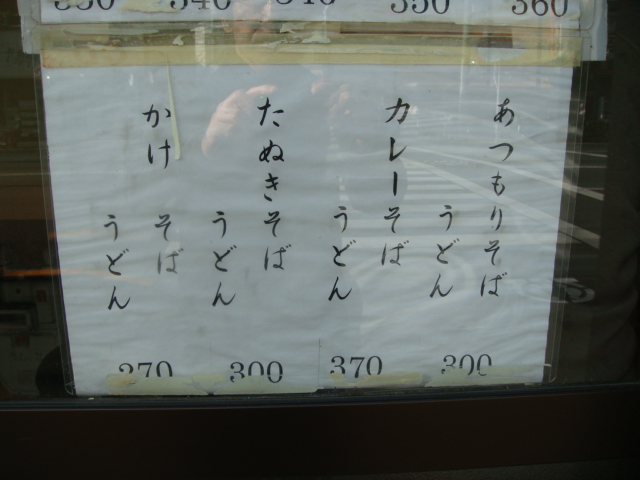 330 340 340 350 360
あつもりそば
うどん
300
カレーそば
うどん
370
たぬきそば
うどん
300
かけそば
うどん
270